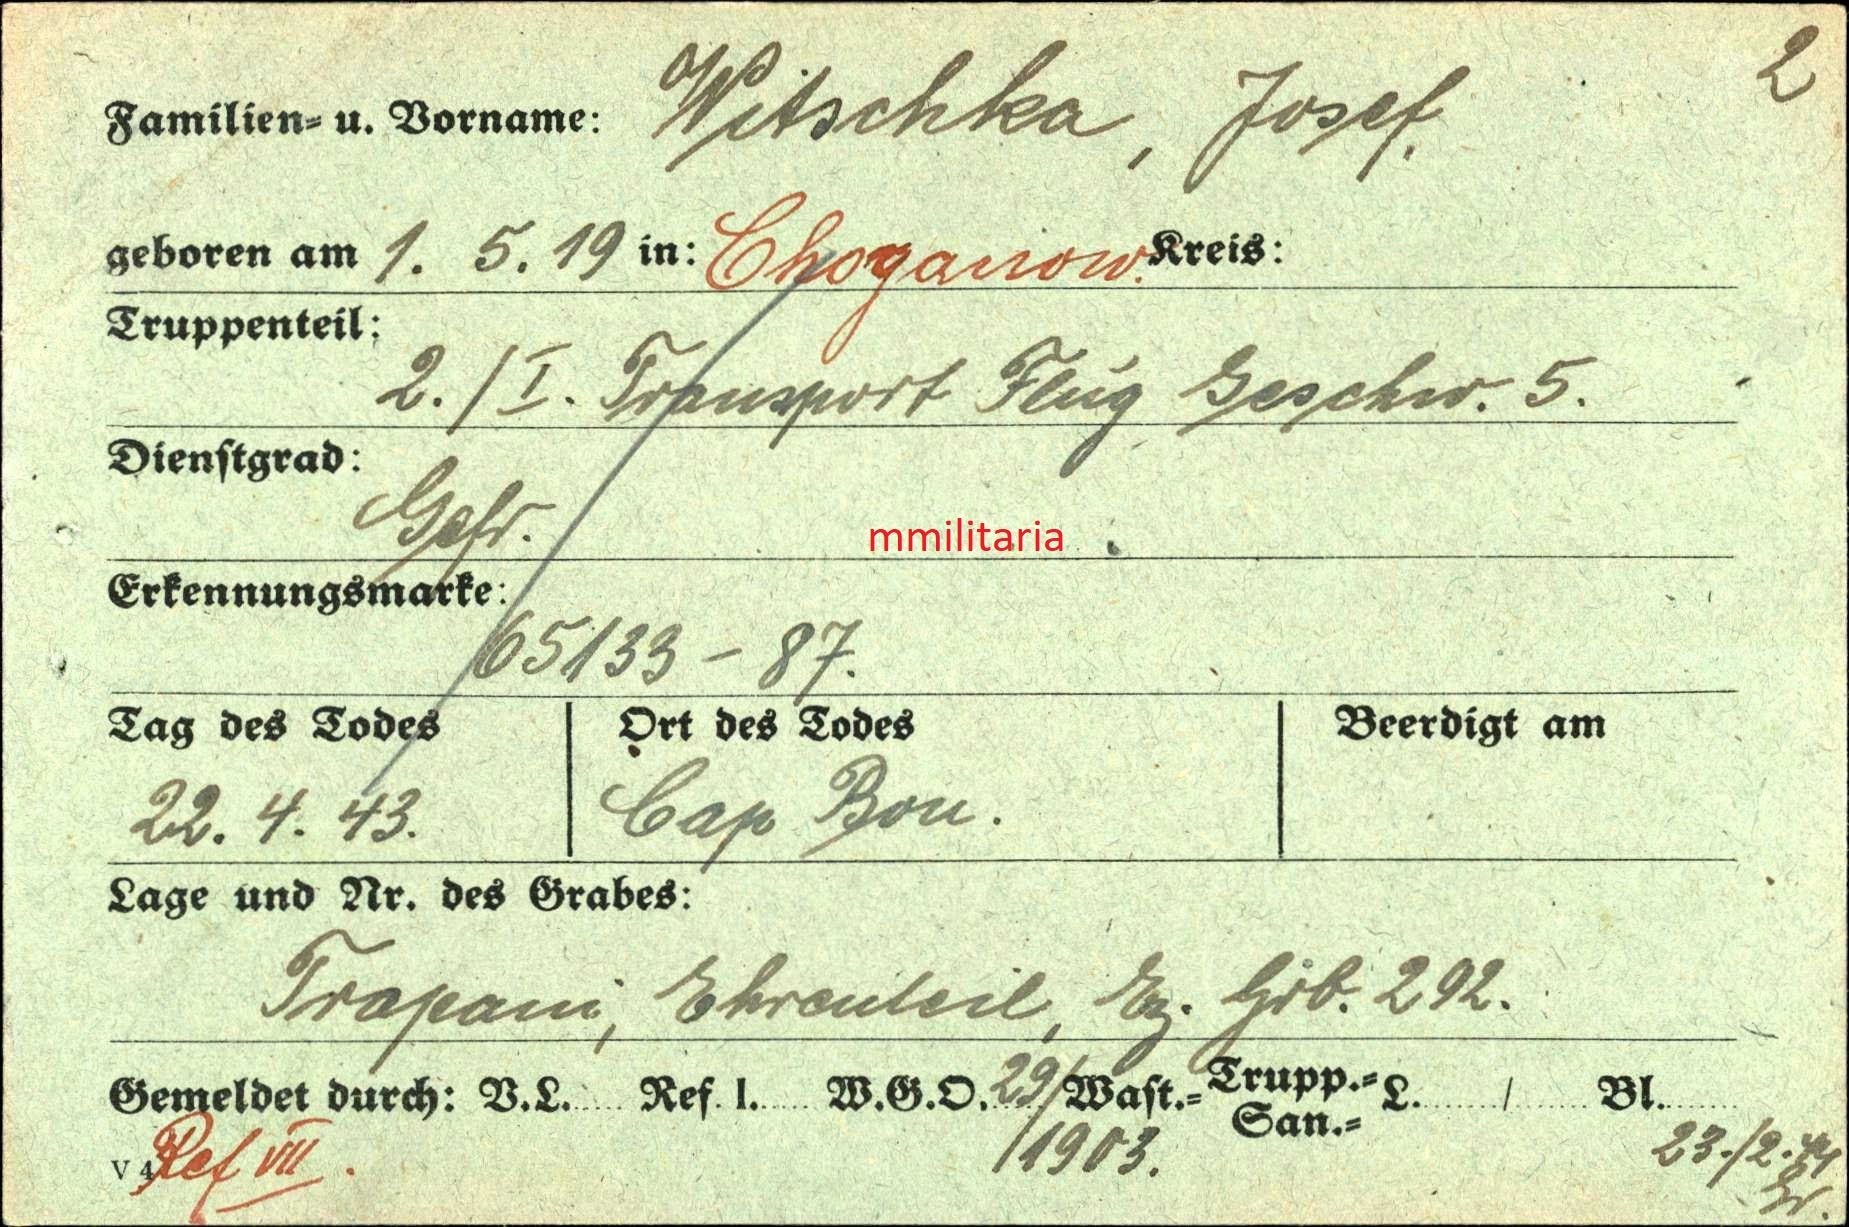 2
Familien- u. Vorname: Witschka, Josef.
geboren am 1. 5. 19 in: Choganow. Kreis:
Truppenteil:
2./I. Transport Flug Geschw. 5.
Dienstgrad:
Gefr.
mmilitaria
Erkennungsmarke:
65133 – 87.
Tag des Todes Ort des Todes Beerdigt am
22. 4. 43. Cap Bon.
Lage und Nr. des Grabes:
Trapani, Ehrenteil, Ez. Grb. 292.
Gemeldet durch: V.L. Ref. I. W.G.O. 29/1903. Wast.- Trupp.- San.- L. / Bl.
V 4 Ref VII. 23./2. 44